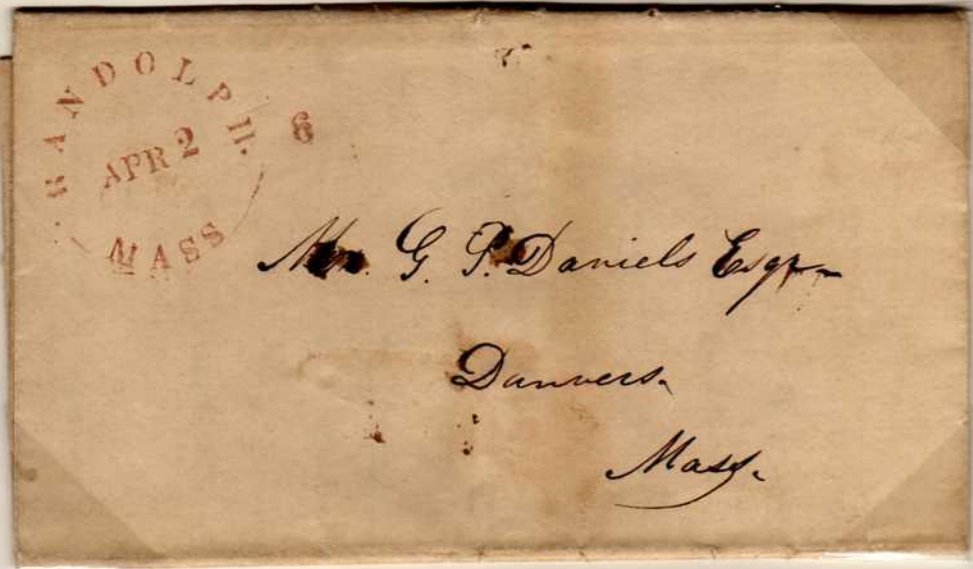 RANDOLPH.
APR 2
MASS
6
Mr. G. P. Daniels Esqr
Danvers.
Mass.